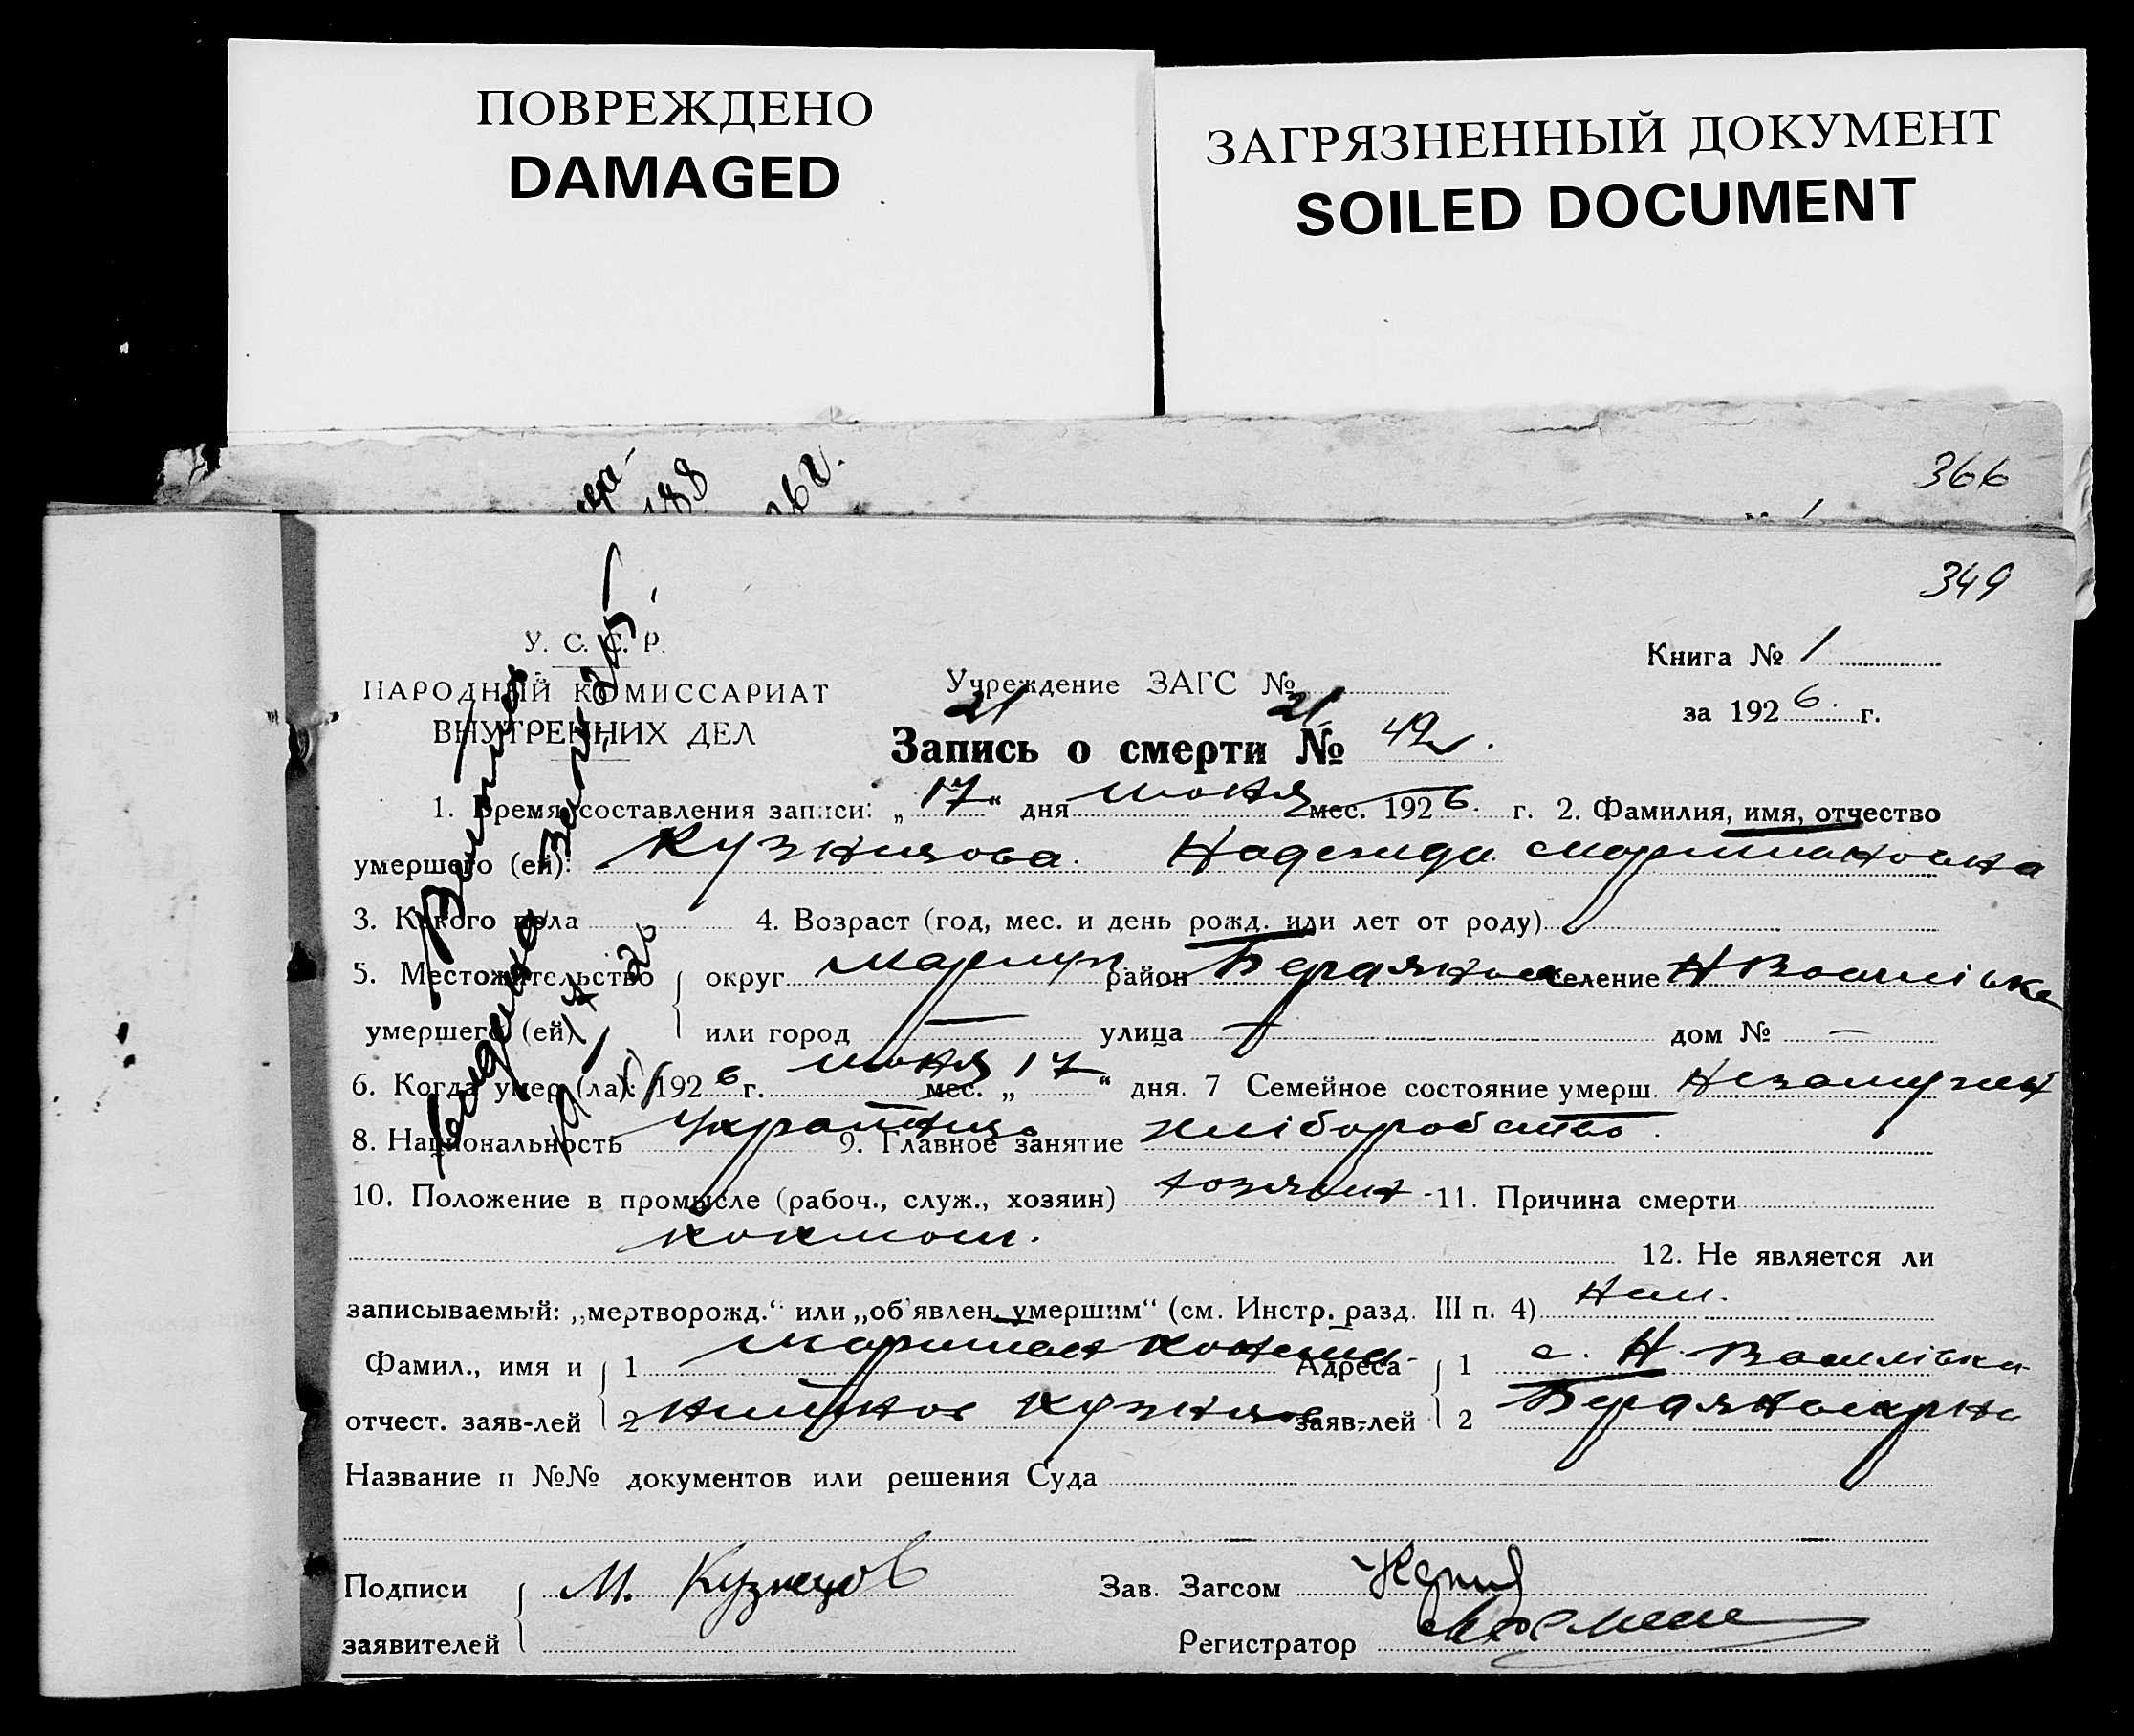 ПОВРЕЖДЕНО
DAMAGED
ЗАГРЯЗНЕННЫЙ ДОКУМЕНТ
SOILED DOCUMENT
366
349
У. С. С. Р.
НАРОДНЫЙ КОМИССАРИАТ
ВНУТРЕННИХ ДЕЛ
Учреждение ЗАГС №
Книга № 1
за 1926 г.
21 21
Запись о смерти № 42
1. Время составления записи: „17“ дня июня мес. 1926 г. 2. Фамилия, имя, отчество
умершего (ей): Кузнизова Надежда Мартинановна
3. Какого пола 4. Возраст (год, мес. и день рожд. или лет от роду)
5. Местожительство округ Мариуп. район селение
умершего (ей) или город — улица — дом № —
6. Когда умер (ла): 1926 г. июня мес. „17“ дня. 7 Семейное состояние умерш.
8. Национальность 9. Главное занятие хліборобство
10. Положение в промысле (рабоч., служ., хозяин) хозяїн 11. Причина смерти
коклюш.
12. Не является ли
записываемый: „мертворожд.“ или „об'явлен. умершим“ (см. Инстр. разд. III п. 4)
Фамил., имя и 1 Адреса 1 с. Н. Василівка
отчест. заяв-лей 2 заяв-лей 2
Название и №№ документов или решения Суда
Подписи М. Кузнецов Зав. Загсом
заявителей Регистратор